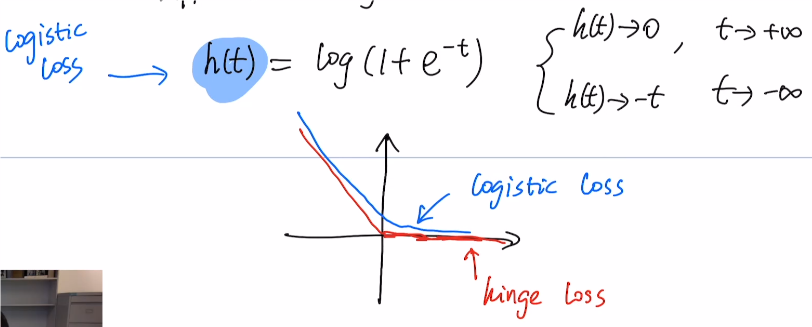 logistic loss → h(t) = log(1+e^{-t}) { h(t)→0, t→+∞
h(t)→-t t→-∞
logistic loss
hinge loss